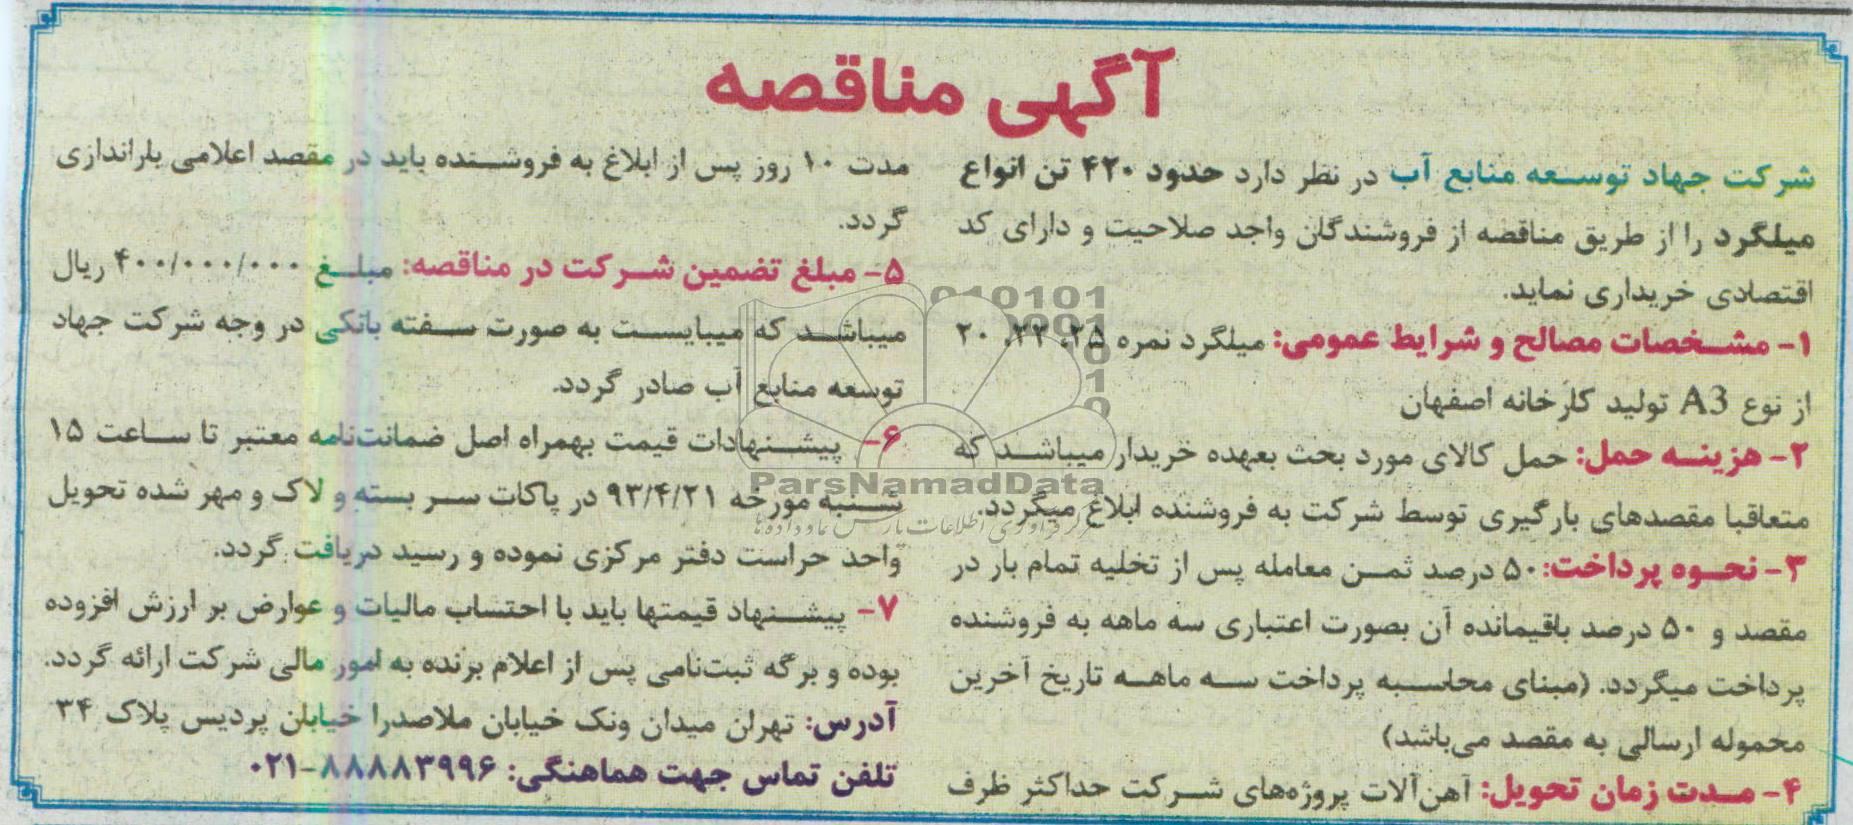 آگهی مناقصه
شرکت جهاد توسعه منابع آب در نظر دارد حدود ۴۲۰ تن انواع
میلگرد را از طریق مناقصه از فروشندگان واجد صلاحیت و دارای کد
اقتصادی خریداری نماید.
۱- مشخصات مصالح و شرایط عمومی: میلگرد نمره ۲۵، ۲۲، ۲۰
از نوع A3 تولید کارخانه اصفهان
۲- هزینه حمل: حمل کالای مورد بحث بعهده خریدار میباشد که
متعاقبا مقصدهای بارگیری توسط شرکت به فروشنده ابلاغ میگردد.
۳- نحوه پرداخت: ۵۰ درصد ثمن معامله پس از تخلیه تمام بار در
مقصد و ۵۰ درصد باقیمانده آن بصورت اعتباری سه ماهه به فروشنده
پرداخت میگردد. (مبنای محاسبه پرداخت سه ماهه تاریخ آخرین
محموله ارسالی به مقصد می‌باشد)
۴- مدت زمان تحویل: آهن‌آلات پروژه‌های شرکت حداکثر ظرف
مدت ۱۰ روز پس از ابلاغ به فروشنده باید در مقصد اعلامی باراندازی
گردد.
۵- مبلغ تضمین شرکت در مناقصه: مبلغ ۴۰۰/۰۰۰/۰۰۰ ریال
میباشد که میبایست به صورت سفته بانکی در وجه شرکت جهاد
توسعه منابع آب صادر گردد.
۶- پیشنهادات قیمت بهمراه اصل ضمانت‌نامه معتبر تا ساعت ۱۵
شنبه مورخه ۹۳/۴/۲۱ در پاکات سر بسته و لاک و مهر شده تحویل
واحد حراست دفتر مرکزی نموده و رسید دریافت گردد.
۷- پیشنهاد قیمتها باید با احتساب مالیات و عوارض بر ارزش افزوده
بوده و برگه ثبت‌نامی پس از اعلام برنده به امور مالی شرکت ارائه گردد.
آدرس: تهران میدان ونک خیابان ملاصدرا خیابان پردیس پلاک ۳۴
تلفن تماس جهت هماهنگی: ۸۸۸۸۳۹۹۶-۰۲۱
ParsNamadData